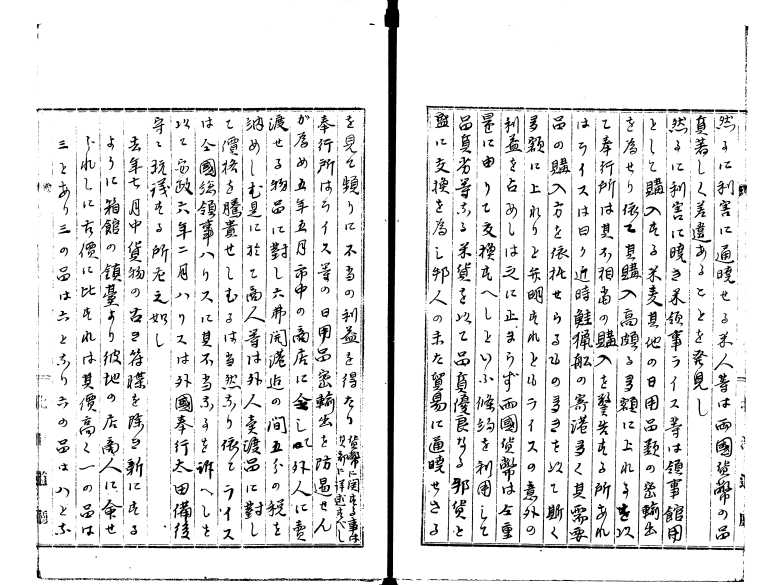 然るに利害に通暁せる米人等は両国貨幣の品
質著しく差違あることを発見し
然るに利害に暁き米領事ライス等は領事館用
として購入する米麦其他の日用品類の密輸出
を為せり依て其購入高頗る多額に上れるを以
て奉行所は其不相当の購入を警告する所あれ
はライスは曰り近時鮭猟船の寄港多く其需要
品の購入方を依托せらるもの多きを以て斯く
多額に上れりと弁明すれともライスの意外の
利益を占めしは之に止まらず両国貨幣は同量
是に由りて交換すへしといふ條約を利用して
品質劣等なる米貨を以て品質優良なる邦貨と
盛に交換を為し邦人の未た貿易に通暁せさる
を見て頗りに不当の利益を得たり
貨幣に関する事は
次節に詳述すへし
奉行所はライス等の日用品密輸出を防遏せん
が為め五年五月市中の商店に令し外人に売
渡せる物品に対し六弗開港迄の間五分の税を
納めしむ是に於て商人等は外人売渡品に対し
て價格を騰貴せしむるは当然なり依てライス
は全国総領事ハリスに其不当なるを訴へしを
以て安政六年二月ハリスは外国奉行太田備後
守に抗議する所左之如し
去年七月中貨物の古き符牒を除き新にする
ように箱館の鎮臺より彼地の店商人に命せ
られしに古價に比すれは其價高く一の品は
三とあり三の品は六となり六の品は八とな